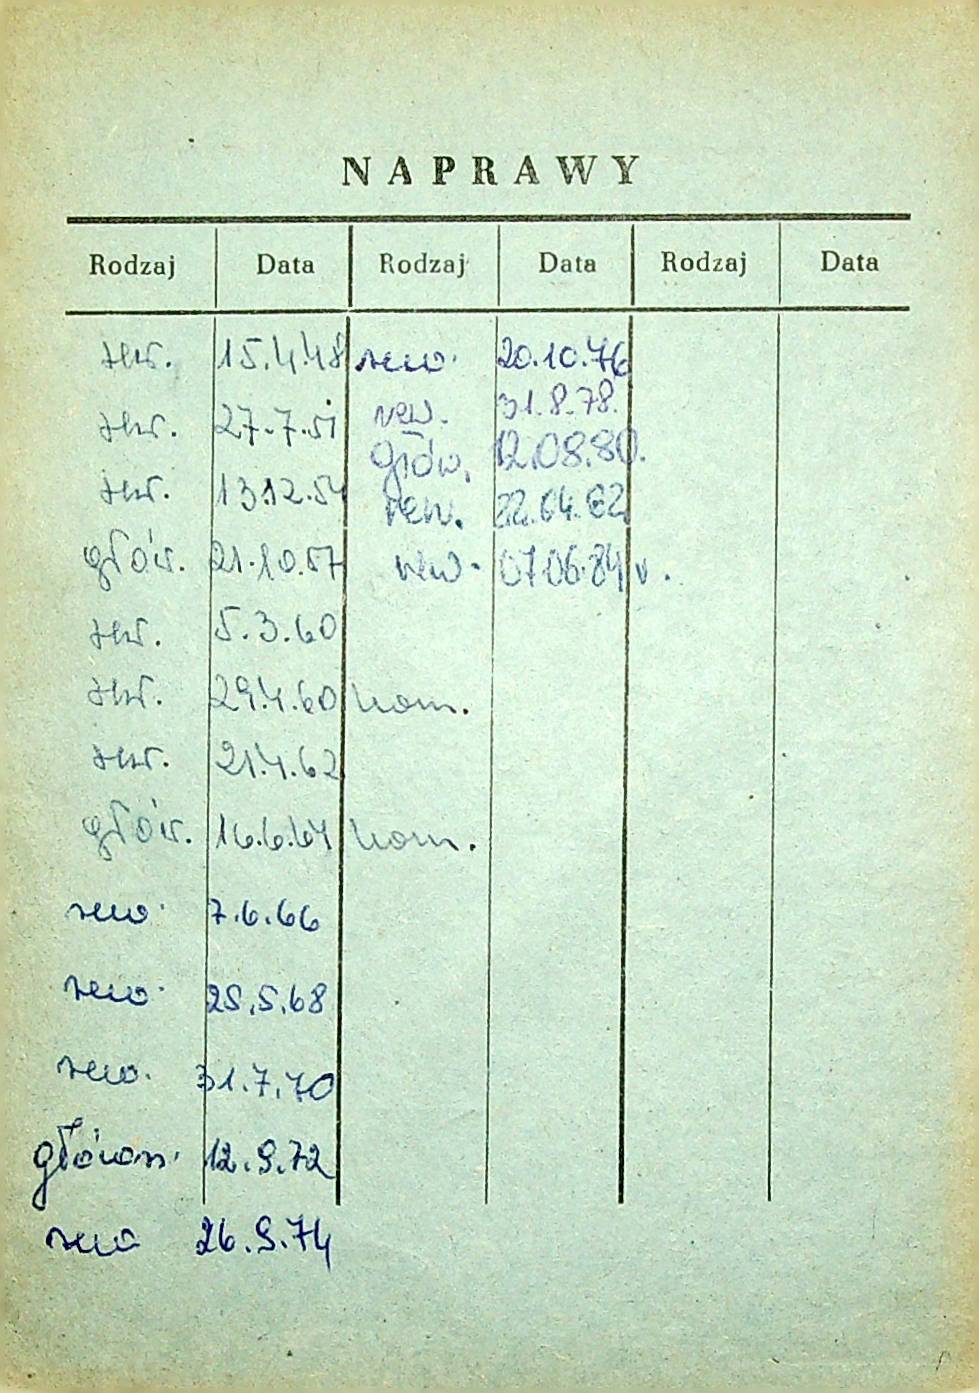 NAPRAWY
Rodzaj Data Rodzaj Data Rodzaj Data
rew. 15.4.48 rew. 20.10.76
rew. 27.7.51 rew. 31.8.78.
głów. 12.08.80.
rew. 13.12.54 rew. 22.04.82
głów. 21.10.57 rew. 07.06.84 r.
rew. 5.3.60
rew. 29.4.60 kom.
rew. 21.4.62
głów. 16.6.64 kom.
rew. 7.6.66
rew. 25.5.68
rew. 31.7.70
główn. 12.9.72
rew 26.9.74